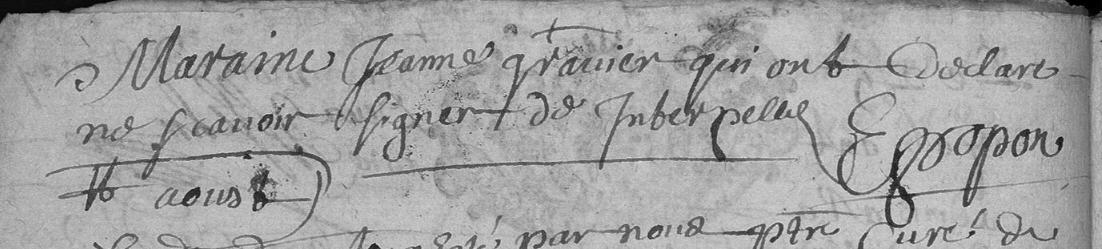 Maraine Jeanne gravier qui ont declare
ne scavoir signer de Interpelles
aoust
par nous ptre Curé de